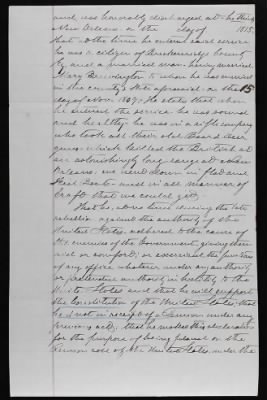 and was honorably discharged at he thinks
New Orleans on the day of 1815.
that at the time of entering said service
he was a citizen of Breckenridge County
Ky and a married man having married
Mary Pennington to whom he was married
in the county & State aforesaid on the 15
day of Nov. 1807. He states that when
he entered the service he was sound
and healthy he was in a
who took all their old
guns which killed the British at
an astonishingly long range at New
Orleans. we went down in flat and
Keel boats and in all manner of
craft that we could get,
That he, at no time during the late
rebellion against the authority of the
United States, adhered to the cause of
the enemies of the Government, giving them
aid or comfort, or exercised the functions
of any office whatever under any authority
or pretended authority in hostility to the
United States and that he will support
the Constitution of the United States, that
he is not in receipt of a Pension under any
previous act; that he makes this declaration
for the purpose of being placed on the
Pension roll of the United States, under the